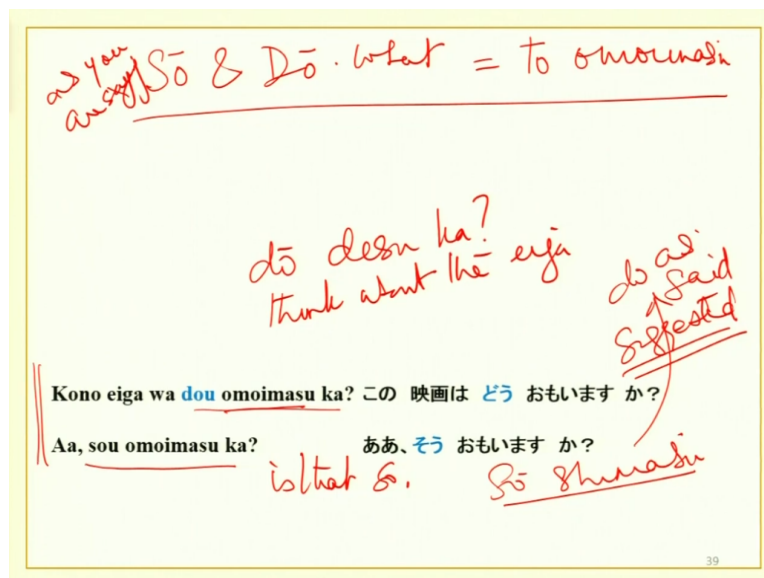 as you
are say Sō & Dō. what = to omoimasu
dō desu ka?
think about the eiga
do as
said
suggested
Kono eiga wa dou omoimasu ka? この 映画は どう おもいます か？
Aa, sou omoimasu ka? ああ、そう おもいます か？
is that so.
Sō shimasu
39